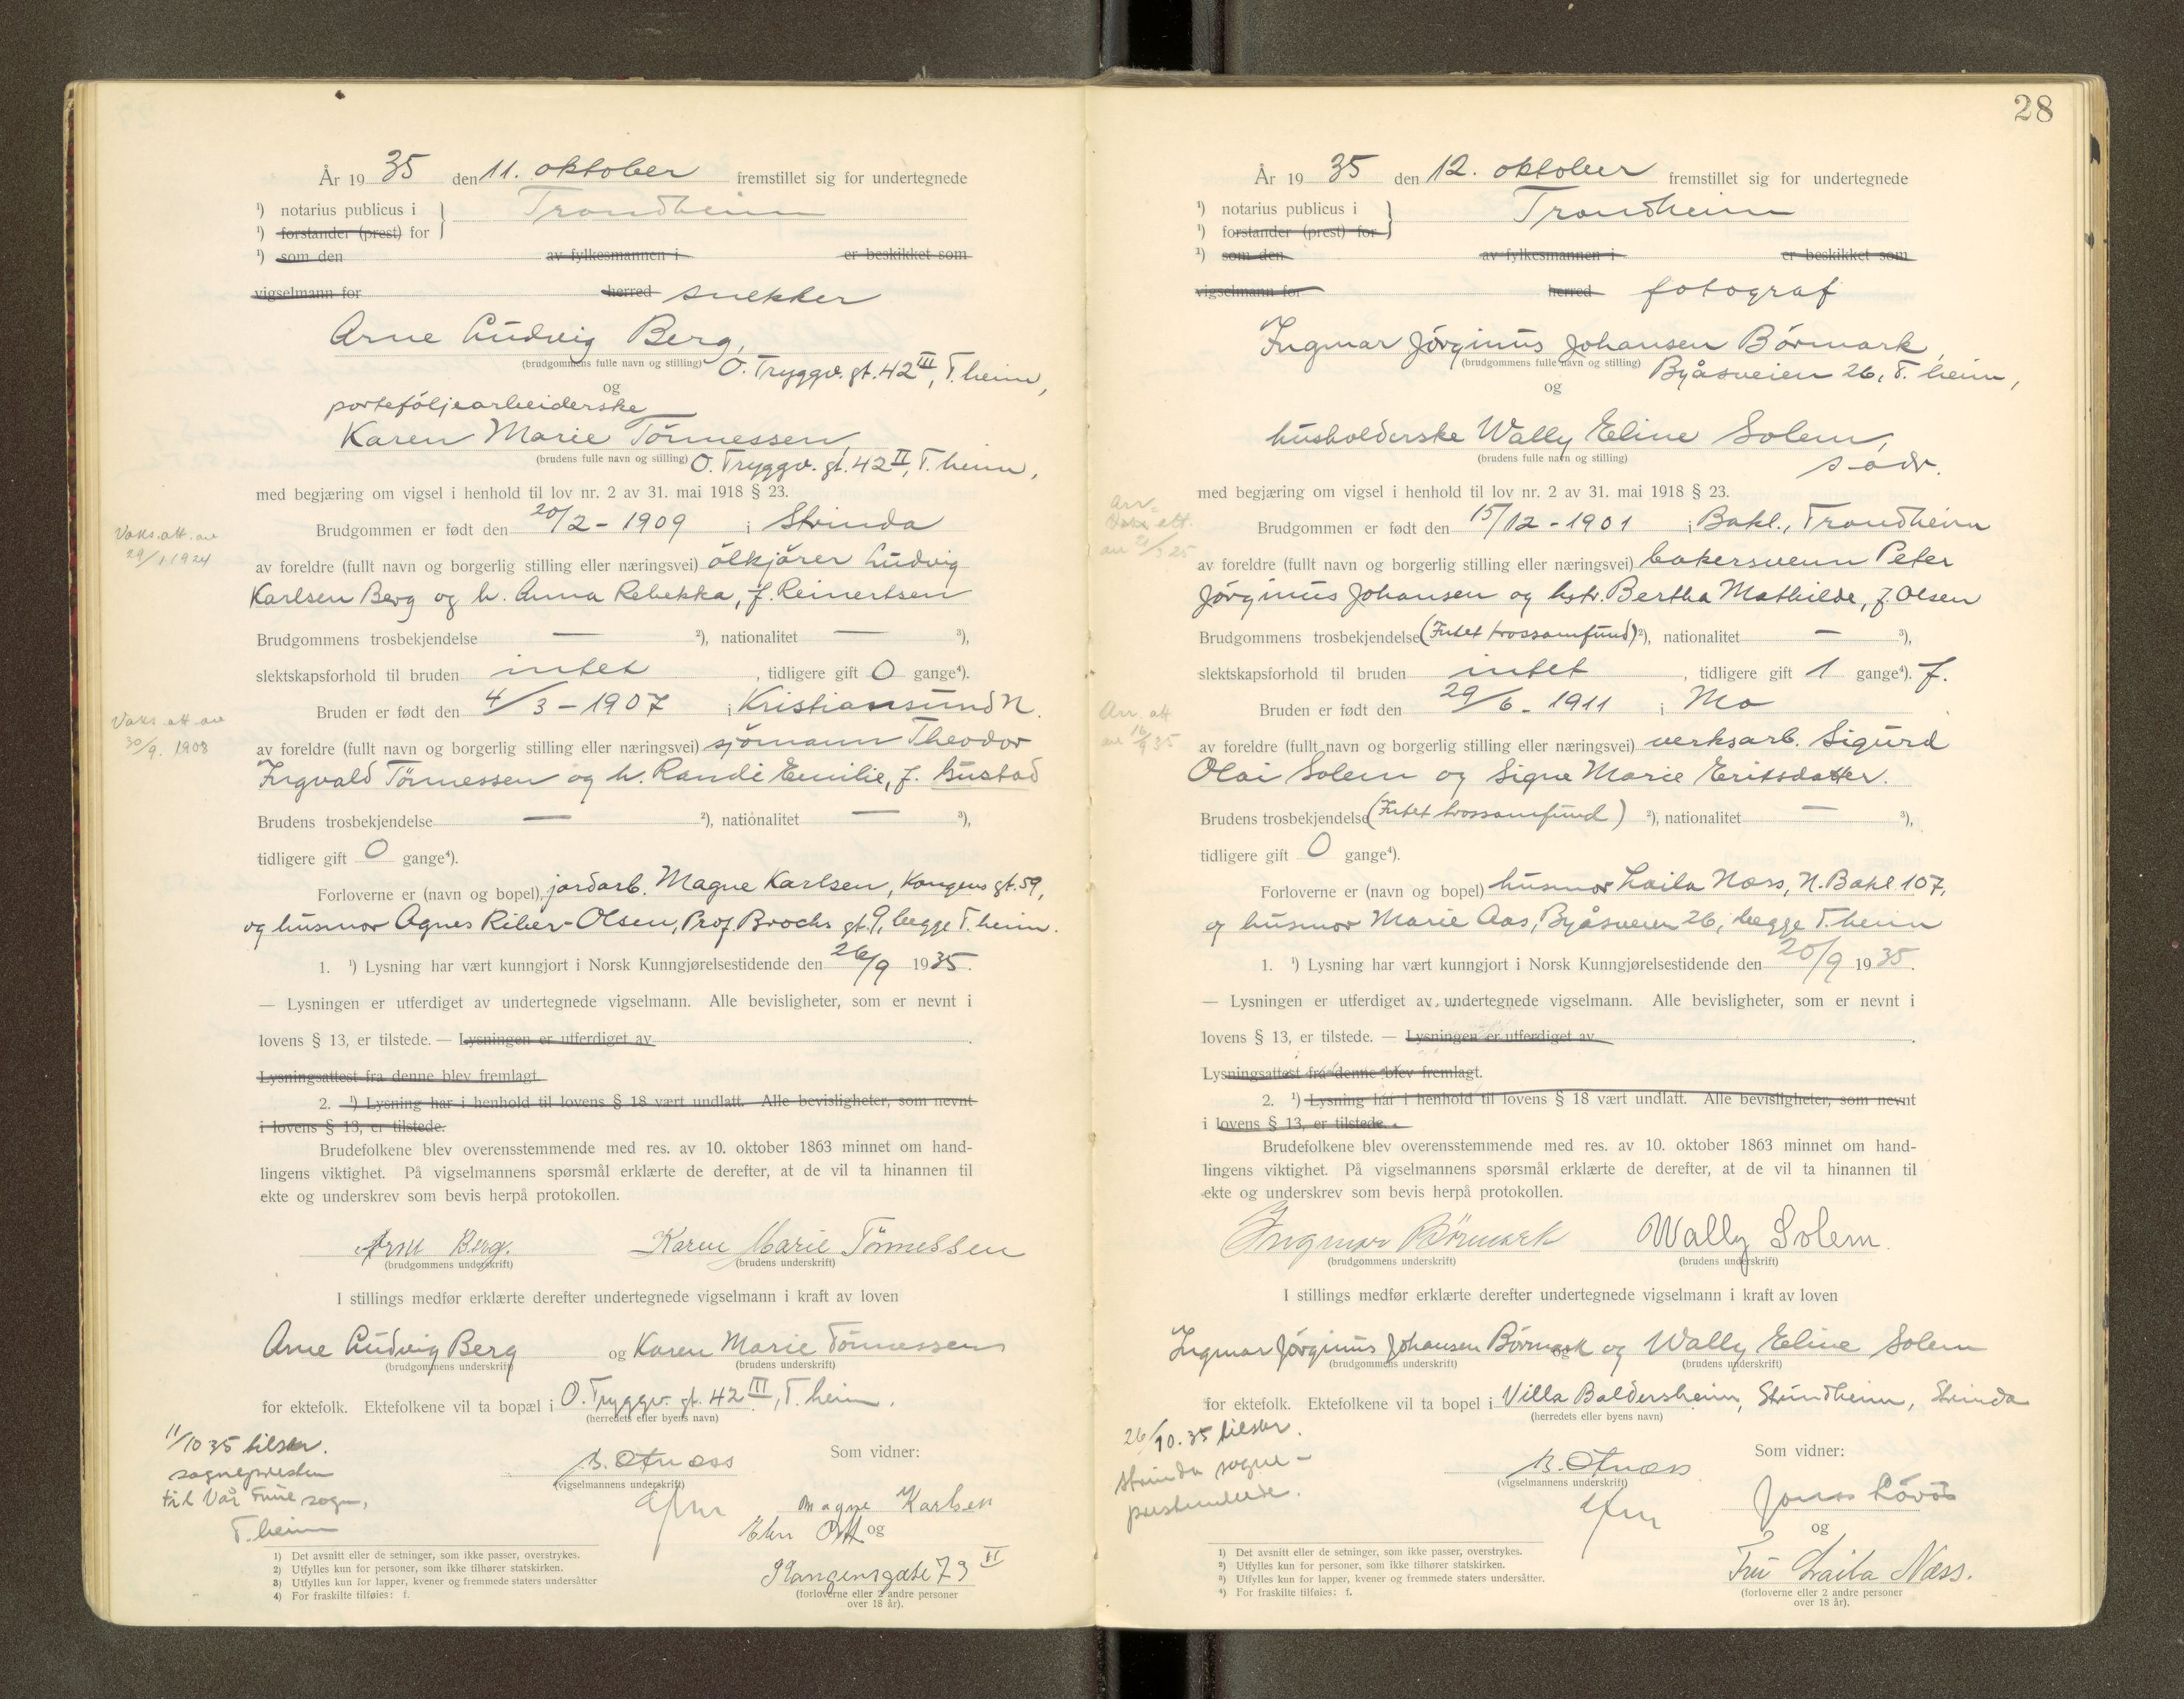 År 19 35 den 11. oktober fremstillet sig for undertegnede
¹) notarius publicus i Trondheim
¹) forstander (prest) for
¹) som den av fylkesmannen i er beskikket som
vigselmann for herred snekker
Arne Ludvig Berg,
(brudgommens fulle navn og stilling) O. Tryggv. gt. 42 III, T.heim,
og
porteføljearbeiderske
Karen Marie Tönnessen,
(brudens fulle navn og stilling) O. Tryggv. gt. 42 II, T.heim,
med begjæring om vigsel i henhold til lov nr. 2 av 31. mai 1918 § 23.
Vaks.att. av
29/1 1924
Brudgommen er født den 20/2 - 1909 i Strinda
av foreldre (fullt navn og borgerlig stilling eller næringsvei) ölkjörer Ludvig
Karlsen Berg og h. Anna Rebekka, f. Reinertsen
Brudgommens trosbekjendelse — ²), nationalitet — ³),
slektskapsforhold til bruden intet, tidligere gift 0 gange⁴).
Bruden er født den 4/3 - 1907 i Kristiansund N.
Vaks.att av
30/9. 1908
av foreldre (fullt navn og borgerlig stilling eller næringsvei) sjömann Theodor
Ingvald Tönnessen og h. Randi Emilie, f. Bustad
Brudens trosbekjendelse — ²), nationalitet — ³),
tidligere gift 0 gange⁴).
Forloverne er (navn og bopel), jordarb. Magne Karlsen, Kongens gt. 59,
og husmor Agnes Riber-Olsen, Prof. Brochs gt. 9, begge T.heim.
1. ¹) Lysning har vært kunngjort i Norsk Kunngjørelsestidende den 26/9 1935.
— Lysningen er utferdiget av undertegnede vigselmann. Alle bevisligheter, som er nevnt i
lovens § 13, er tilstede. — Lysningen er utferdiget av
Lysningsattest fra denne blev fremlagt
2. ¹) Lysning har i henhold til lovens § 18 vært undlatt. Alle bevisligheter, som nevnt
i lovens § 13, er tilstede.
Brudefolkene blev overensstemmende med res. av 10. oktober 1863 minnet om hand-
lingens viktighet. På vigselmannens spørsmål erklærte de derefter, at de vil ta hinannen til
ekte og underskrev som bevis herpå protokollen.
Arne Berg. Karen Marie Tönnessen
(brudgommens underskrift) (brudens underskrift)
I stillings medfør erklærte derefter undertegnede vigselmann i kraft av loven
Arne Ludvig Berg og Karen Marie Tönnessen
(brudgommens underskrift) (brudens underskrift)
for ektefolk. Ektefolkene vil ta bopæl i O. Tryggv. gt. 42 III, T.heim.
(herredets eller byens navn)
11/10 35 tilskr.
sognepresten
til Vår Frue sogn,
T.heim
Som vidner:
(vigselmannens underskrift)
Magne Karlsen
og
(forloverne eller 2 andre personer
over 18 år).
1) Det avsnitt eller de setninger, som ikke passer, overstrykes.
2) Utfylles kun for personer, som ikke tilhører statskirken.
3) Utfylles kun for lapper, kvener og fremmede staters undersåtter
4) For fraskilte tilføies: f.
28
År 19 35 den 12. oktober fremstillet sig for undertegnede
¹) notarius publicus i Trondheim
¹) forstander (prest) for
¹) som den av fylkesmannen i er beskikket som
vigselmann for herred fotograf
Ingmar Jörginus Johansen Börmark,
(brudgommens fulle navn og stilling) Byåsveien 26, T.heim,
og
husholderske Wally Eline Solem,
(brudens fulle navn og stilling) s. adr.
med begjæring om vigsel i henhold til lov nr. 2 av 31. mai 1918 § 23.
Brudgommen er født den 15/12 - 1901 i Bakl., Trondheim
av foreldre (fullt navn og borgerlig stilling eller næringsvei) bakersvenn Peter
Jörginus Johansen og hstr. Bertha Mathilde, f. Olsen
Brudgommens trosbekjendelse (Intet trossamfund) ²), nationalitet — ³),
slektskapsforhold til bruden intet, tidligere gift 1 gange⁴). f.
Bruden er født den 29/6 - 1911 i Mo
An. att
av 16/9 35
av foreldre (fullt navn og borgerlig stilling eller næringsvei) verksarb. Sigurd
Olai Solem og Signe Marie Eriksdatter.
Brudens trosbekjendelse (Intet trossamfund) ²), nationalitet — ³),
tidligere gift 0 gange⁴).
Forloverne er (navn og bopel) husmor Laila Næss, N. Bakl. 107,
og husmor Marie Aas, Byåsveien 26, begge T.heim
1. ¹) Lysning har vært kunngjort i Norsk Kunngjørelsestidende den 20/9 1935.
— Lysningen er utferdiget av undertegnede vigselmann. Alle bevisligheter, som er nevnt i
lovens § 13, er tilstede. — Lysningen er utferdiget av
Lysningsattest fra denne blev fremlagt.
2. ¹) Lysning har i henhold til lovens § 18 vært undlatt. Alle bevisligheter, som nevnt
i lovens § 13, er tilstede.
Brudefolkene blev overensstemmende med res. av 10. oktober 1863 minnet om hand-
lingens viktighet. På vigselmannens spørsmål erklærte de derefter, at de vil ta hinannen til
ekte og underskrev som bevis herpå protokollen.
Ingmar Börmark Wally Solem.
(brudgommens underskrift) (brudens underskrift)
I stillings medfør erklærte derefter undertegnede vigselmann i kraft av loven
Ingmar Jörginus Johansen Börmark og Wally Eline Solem
(brudgommens underskrift) (brudens underskrift)
for ektefolk. Ektefolkene vil ta bopel i Villa Baldersheim, Strindheim, Strinda
(herredets eller byens navn)
26/10. 35 tilskr.
Strinda sogne-
prestembede.
Som vidner:
(vigselmannens underskrift)
og
Fru Laila Næss.
(forloverne eller 2 andre personer
over 18 år).
¹) Det avsnitt eller de setninger, som ikke passer, overstrykes.
²) Utfylles kun for personer, som ikke tilhører statskirken.
³) Utfylles kun for lapper, kvener og fremmede staters undersåtter.
⁴) For fraskilte tilføies: f.